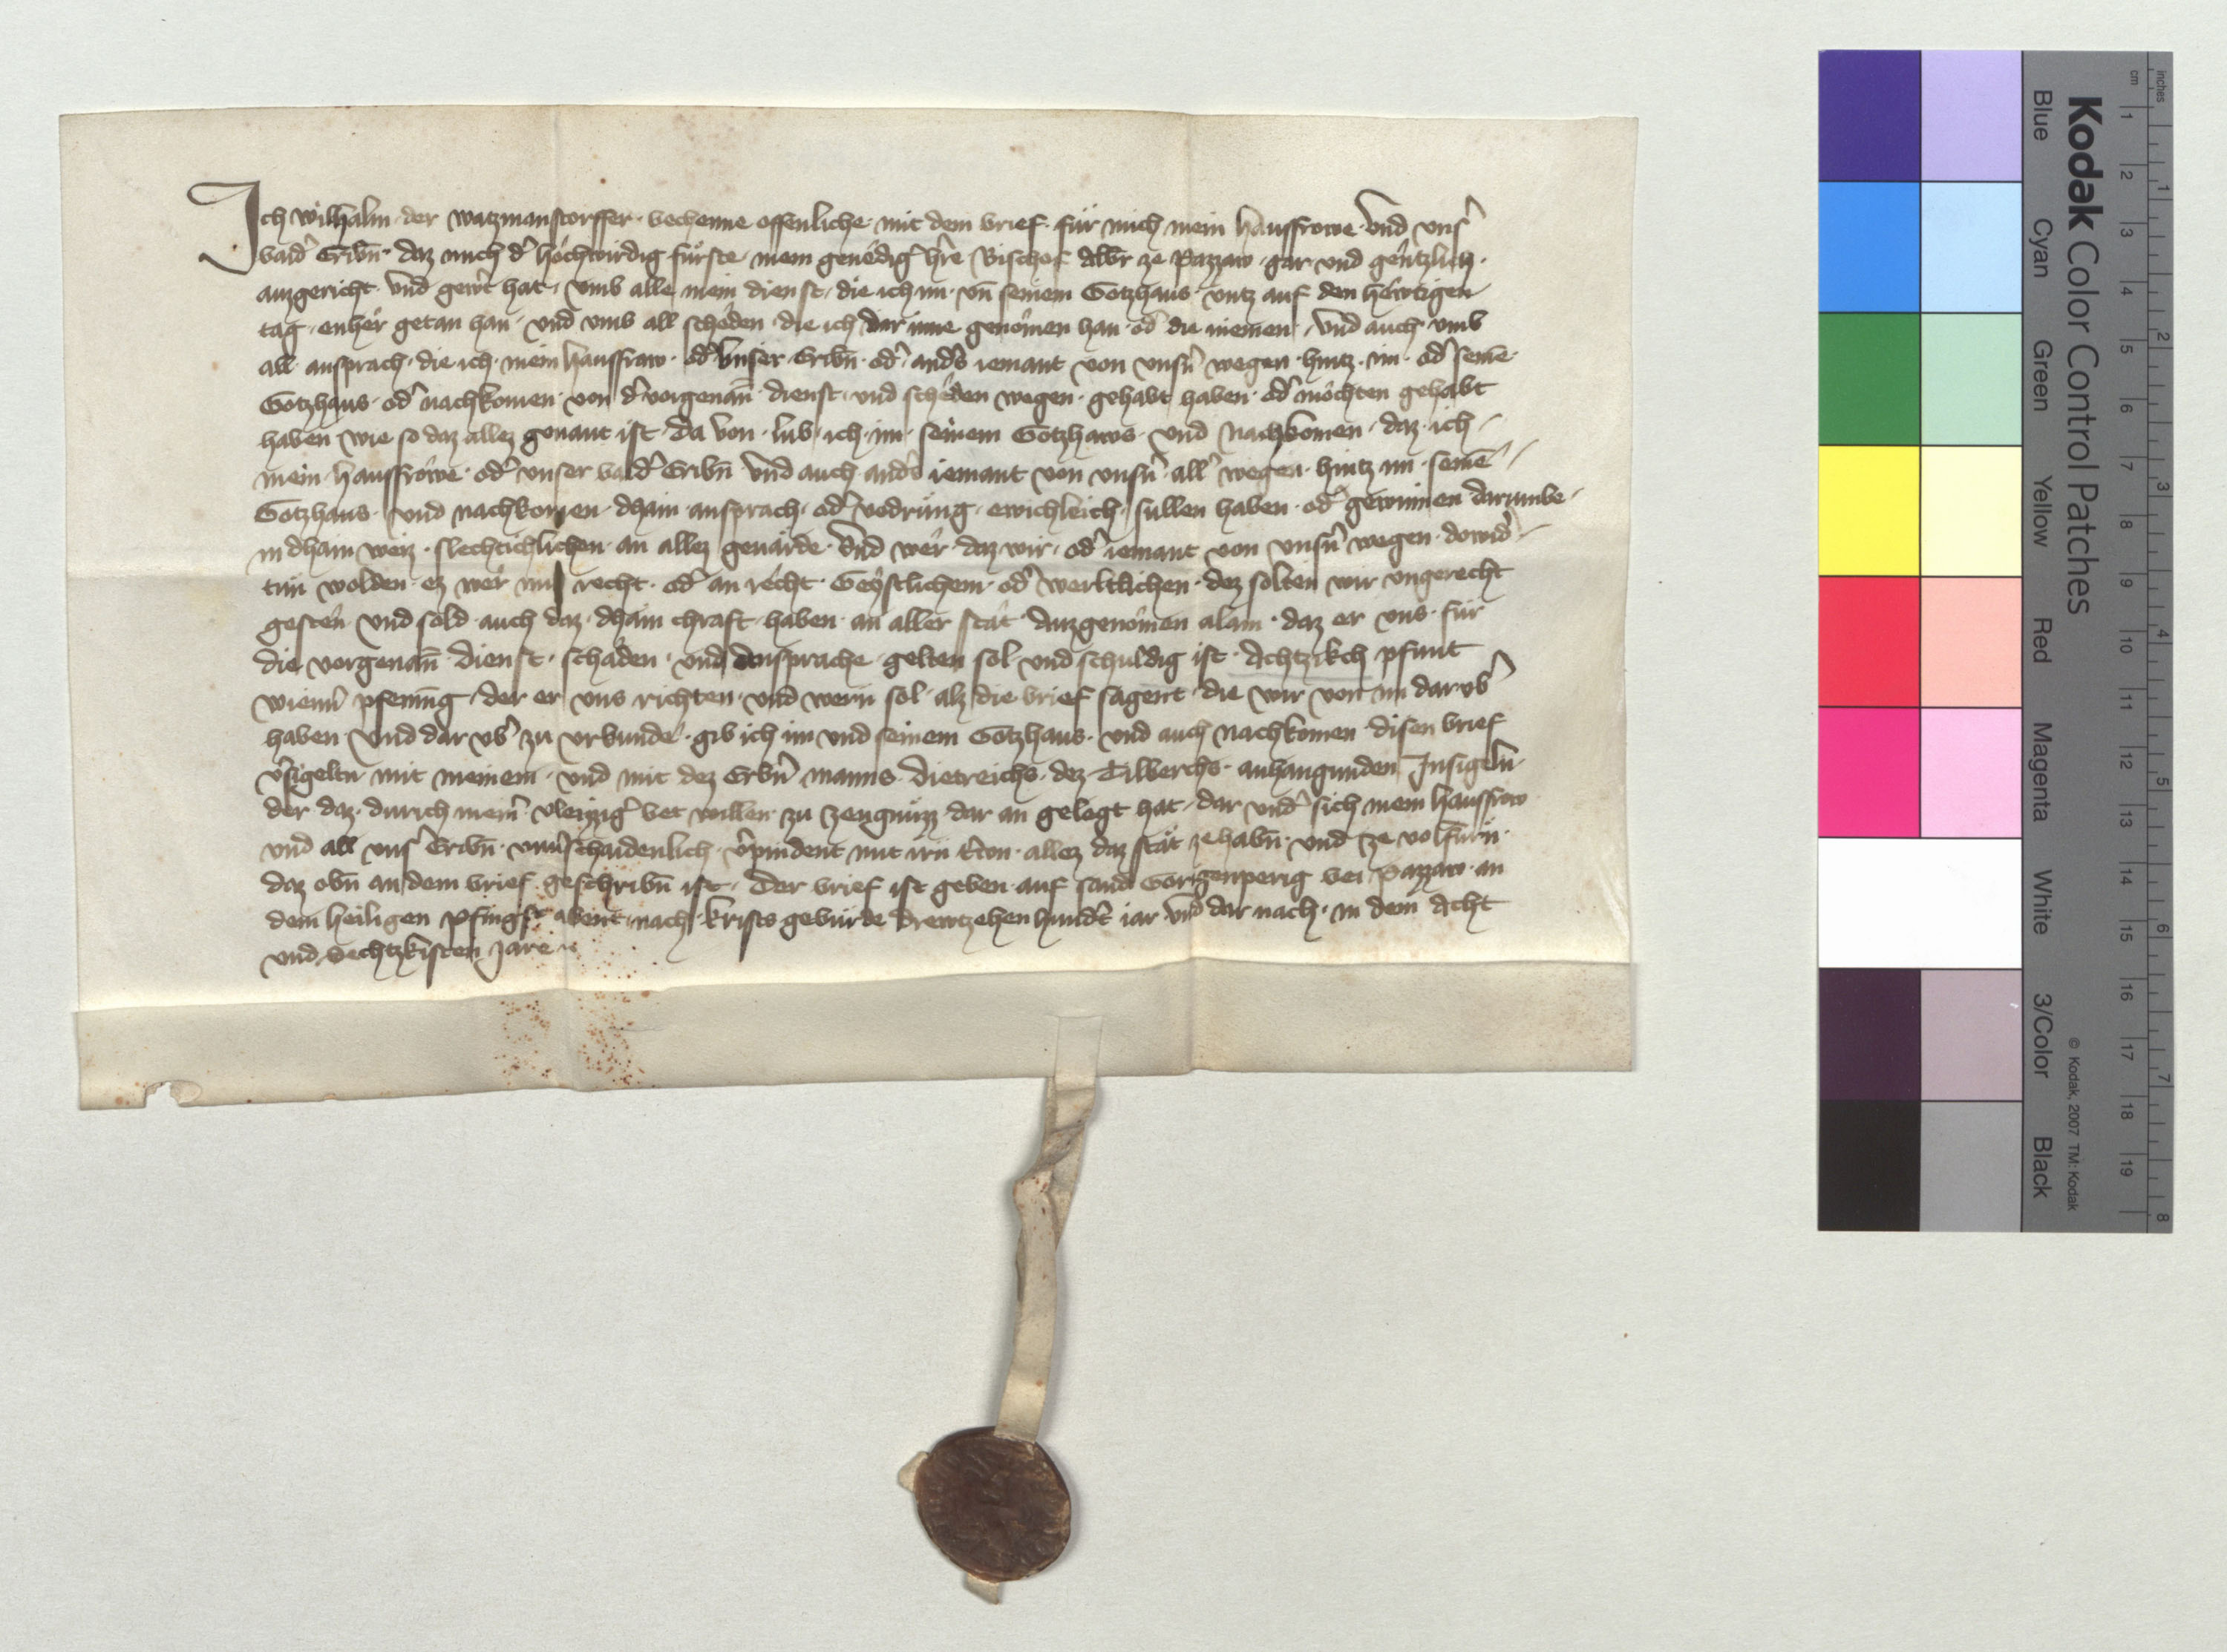 Ich wilhalm · der watzmanstorffer · vechenne offenliche · mit dem brief · für mich mein hausfrowe · Und vnsˀ
baidˀ Eribn̄ · daz mich dˀ hochwirdig fürste · mein genedigˀ hˀre Bischof Albr̄ ze Pazzaw · gar und gentzlich ·
auzgericht · Und gewˀt hat · Umb alle mein dienst · die ich im · vn̄ seinem Gotzhaus · vntz auf den hewtigen
tag · enher getan han · und vmb all scheden · die ich dar inne genomen han · odˀ die niemen · Und auch · vmb
all · ansprach · die ich · mein hausfraw · odˀ Unser · Eribn̄ · odˀ andˀs iemant von vnsˀn wegen · hintz · im · odˀ seinē ·
Gotzhaus · odˀ nachkomen · von dˀ vorgenan̄ · dienst · und scheden wegen · gehabt haben · odˀ möchten gehabt
haben wie so daz allez genant ist · Da von · lub · ich · im · seinem Gotzhaws · und nachkomen · daz · ich
mein · hausfrowe · odˀ vnser baidˀ Eribn̄ · Und auch andˀs iemant von vnsˀn · allˀ wegen · hintz im · seinē
Gotzhaus · und nachkomen · dhain · ansprach · odˀ vodrung · ewichleich · sullen haben · odˀ gewinnen darumbe ·
in dhain weiz · slechtichlichen · an allez geuärde · Und wer · daz wir · odˀ iemant von vnsˀn wegen · dowidˀ
tun wolden · ez wer mit recht · odˀ an recht · Geystlichem · odˀ werltlichen · dez solten wir vngerecht
gesten · und sold auch daz · dhain chraft · haben · an aller stat · Auzgenomen alain · daz er vns · für
die vorgenan̄ · dienst · schaden · und Ansprache · gelten sol und schuldig ist · Achtzikch pfunt
wiennˀ pfenning · der er vns richten · und wern sol · alz die brief sagent · die wir von im darvbˀ
haben · Und dar vbˀ zu vrkunde · gib ich im und seinem Gotzhaus · und auch nachkomen · disen brief
vˀsigeltn · mit meinem · und mit dez Erbˀn manns · Dietreichs · dez · Tilberchs · anhangunden Insigeln ·
der daz · durich meinˀ vleizzigˀ bet willen · zu zeugnuzz · dar an gelegt hat · dar vndˀ sich mein hausfrow
und all vnsˀ Eribn̄ · vnuˀschaidenlich · vˀpindent mit irn trˀwn · allez daz stät ze habn̄ · und ze volfurn ·
daz obn̄ an dem brief · geschribn̄ ist · Der brief ist geben · auf sand Görigenperig bei Pazzaw · an
dem heiligen Pfingst abent · nach · krists gebürde drewtzehen hundˀt iar und dar nach · in dem Acht
und Sechtzkisten Jare
Kodak Color Control Patches
Blue Cyan Green Yellow Red Magenta White 3/Color Black
© Kodak, 2007 TM: Kodak
inches 1 2 3 4 5 6 7 8
cm 1 2 3 4 5 6 7 8 9 10 11 12 13 14 15 16 17 18 19